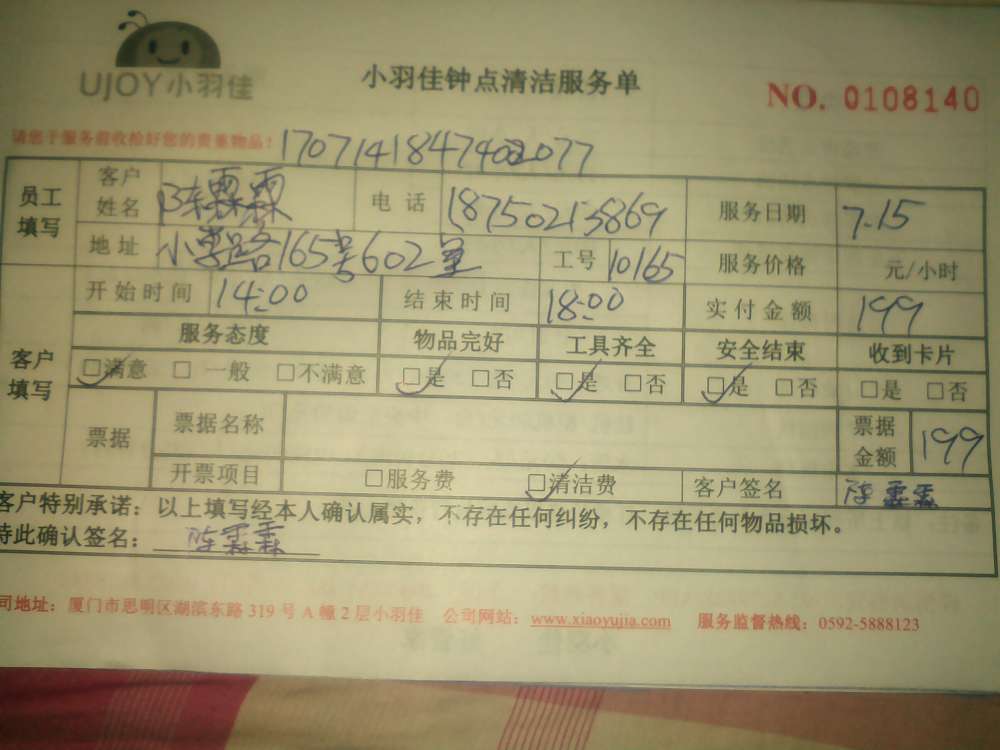 UJOY小羽佳
小羽佳钟点清洁服务单
NO. 0108140
请您于服务前收拾好您的贵重物品！ 1707141847402077
员工填写 客户姓名 陈霖霖 电话 18750213869 服务日期 7.15
地址 小学路165号602室 工号 10165 服务价格 元/小时
客户填写 开始时间 14:00 结束时间 18:00 实付金额 199
服务态度 物品完好 工具齐全 安全结束 收到卡片
☑满意 □一般 □不满意 ☑是 □否 ☑是 □否 ☑是 □否 □是 □否
票据 票据名称 票据金额 199
开票项目 □服务费 ☑清洁费 客户签名 陈霖霖
客户特别承诺：以上填写经本人确认属实，不存在任何纠纷，不存在任何物品损坏。
特此确认签名： 陈霖霖
司地址：厦门市思明区湖滨东路 319 号 A 幢 2 层小羽佳 公司网站：www.xiaoyujia.com 服务监督热线：0592-5888123